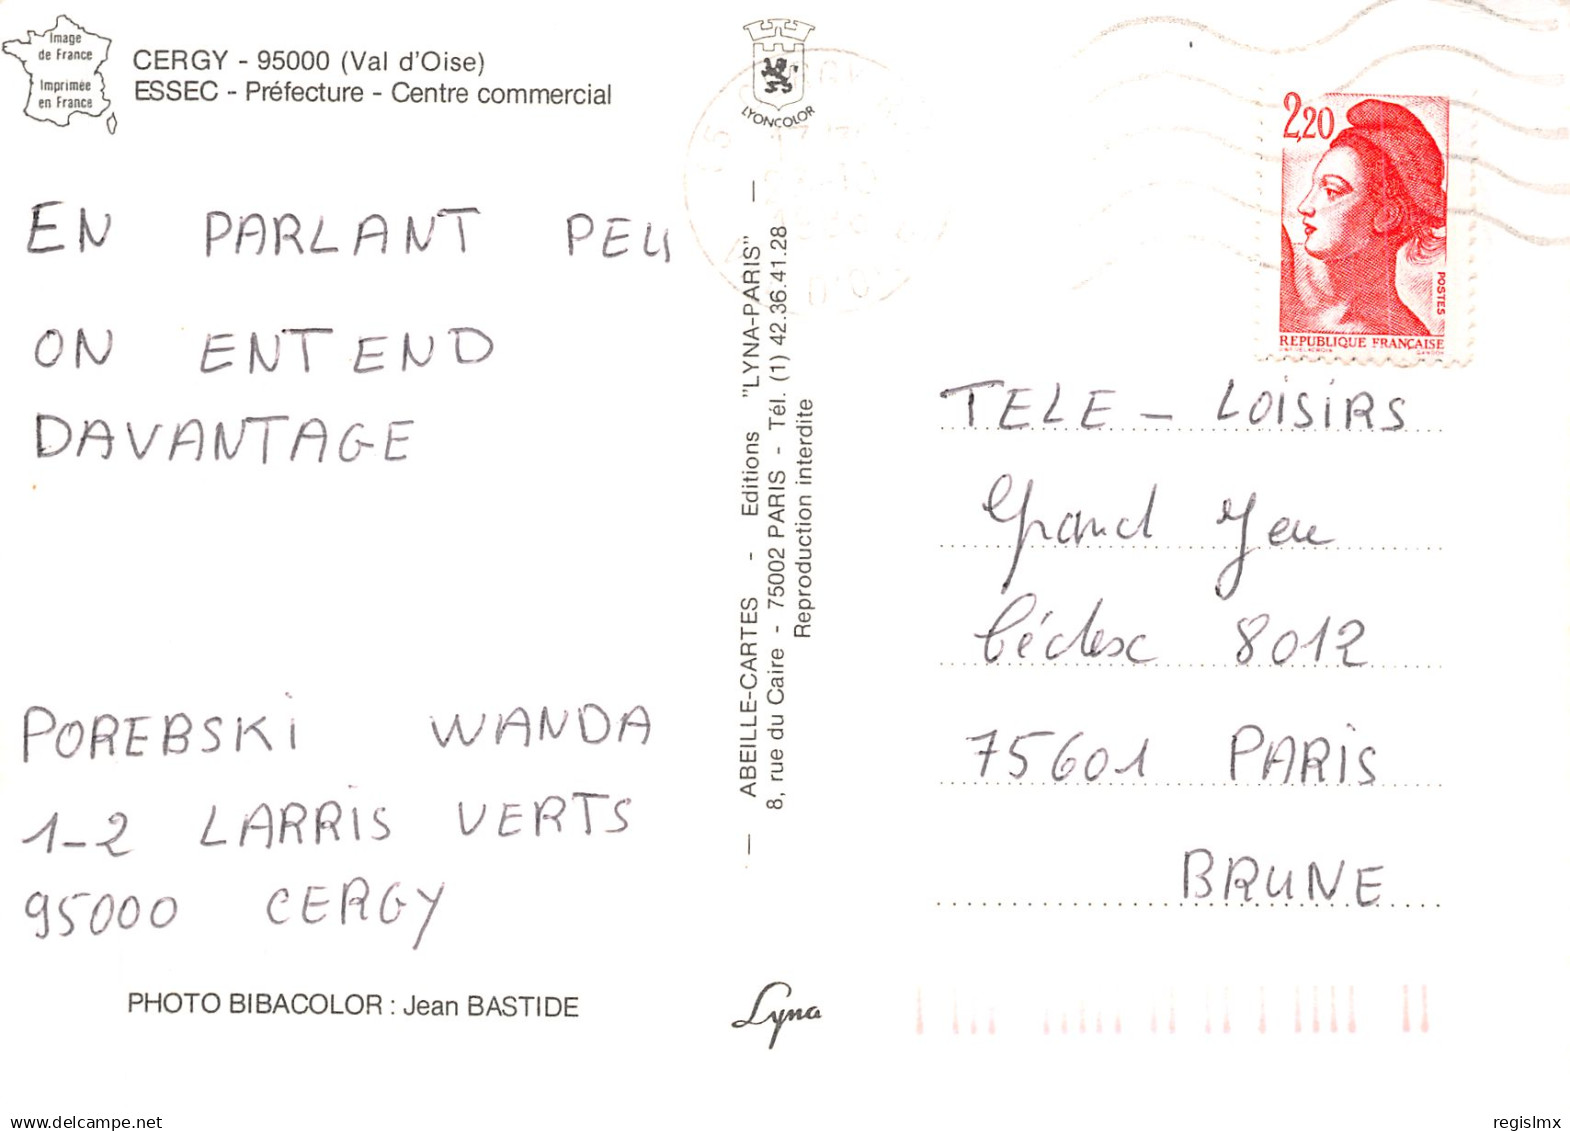 Image
de France
Imprimée
en France
CERGY - 95000 (Val d'Oise)
ESSEC - Préfecture - Centre commercial
LYONCOLOR
2,20
POSTES
REPUBLIQUE FRANÇAISE
EN PARLANT PEU
ON ENTEND
DAVANTAGE
POREBSKI WANDA
1-2 LARRIS VERTS
95000 CERGY
PHOTO BIBACOLOR : Jean BASTIDE
ABEILLE-CARTES - Editions "LYNA-PARIS"
8, rue du Caire - 75002 PARIS - Tél. (1) 42.36.41.28
Reproduction interdite
Lyna
TELE - LOISIRS
Grand Jeu
Cédex 8012
75601 PARIS
BRUNE
delcampe.net
regislmx